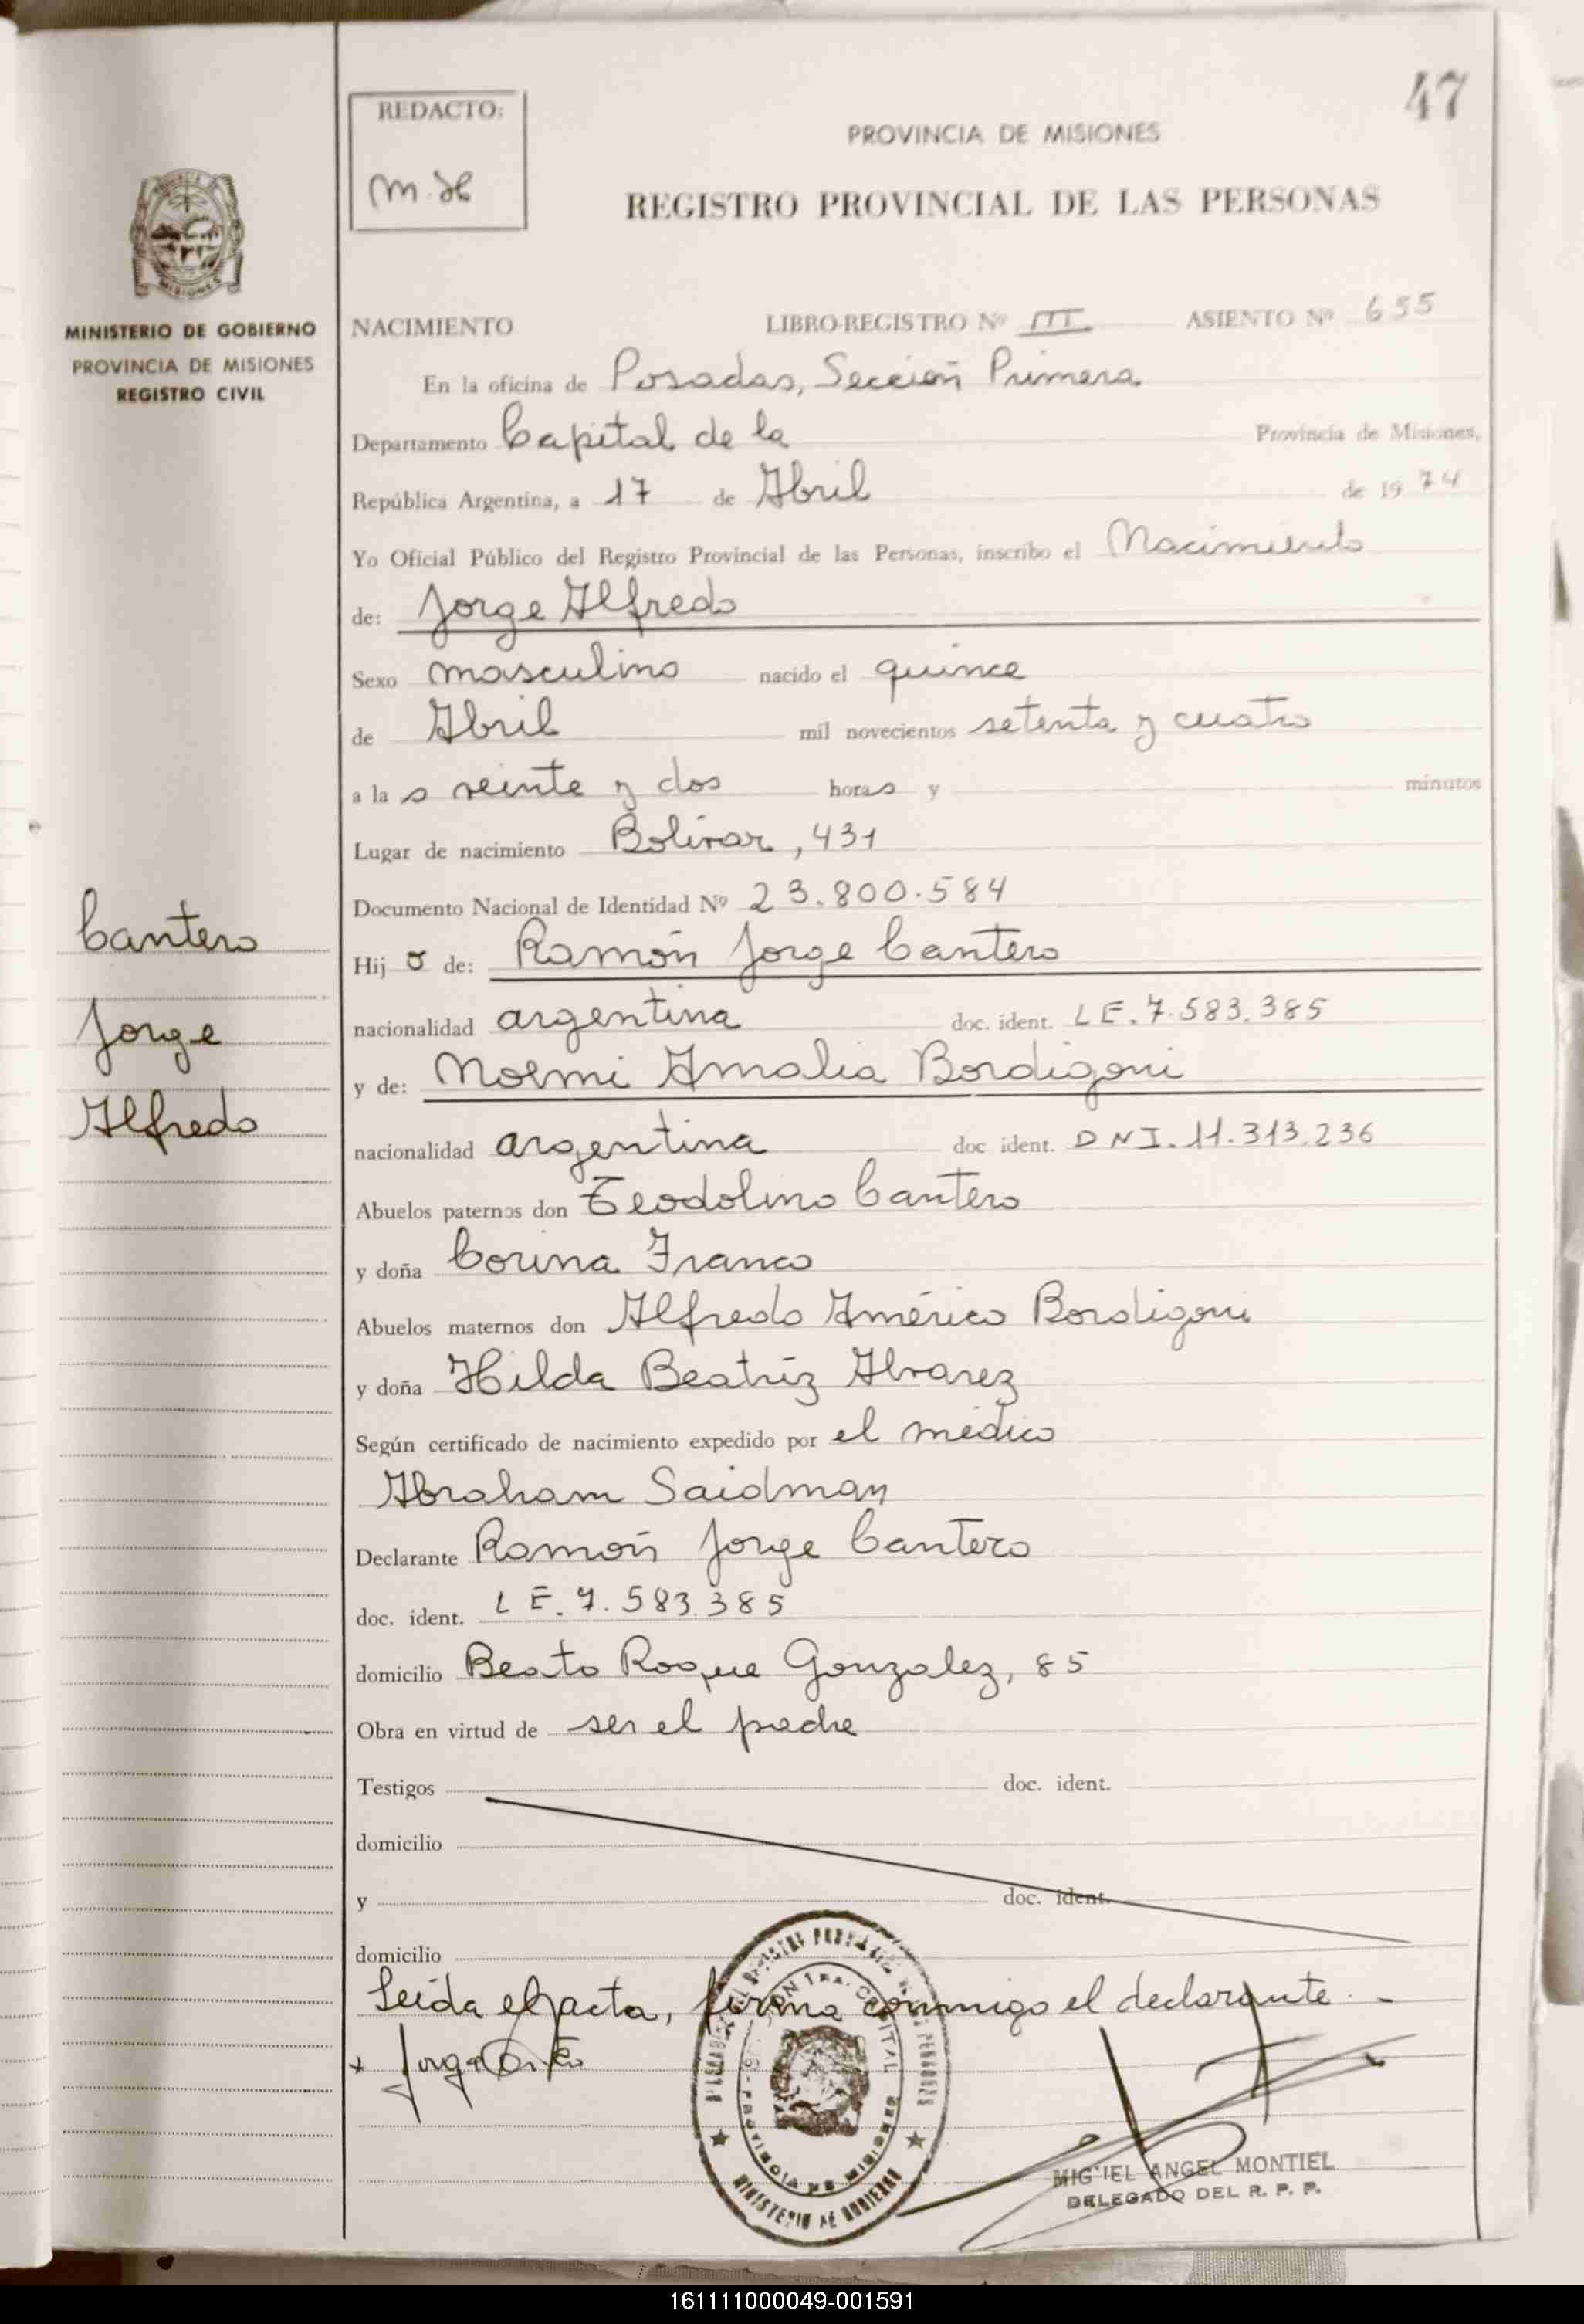 47
REDACTO:
M.H
PROVINCIA DE MISIONES
REGISTRO PROVINCIAL DE LAS PERSONAS
MISIONES
MINISTERIO DE GOBIERNO
PROVINCIA DE MISIONES
REGISTRO CIVIL
NACIMIENTO LIBRO-REGISTRO Nº III ASIENTO Nº 655
En la oficina de Posadas, Sección Primera
Departamento Capital de la Provincia de Misiones,
República Argentina, a 17 de Abril de 1974
Yo Oficial Público del Registro Provincial de las Personas, inscribo el Nacimiento
de: Jorge Alfredo
Sexo masculino nacido el quince
de Abril mil novecientos setenta y cuatro
a la s veinte y dos horas y minutos
Lugar de nacimiento Bolívar, 431
Documento Nacional de Identidad Nº 23.800.584
Cantero
Jorge
Alfredo
Hijo de: Ramón Jorge Cantero
nacionalidad argentina doc. ident. LE. 7.583.385
y de: Noemi Amalia Bordigoni
nacionalidad argentina doc ident. DNI. 11.313.236
Abuelos paternos don Teodolino Cantero
y doña Corina Franco
Abuelos maternos don Alfredo Américo Bordigoni
y doña Hilda Beatriz Alvarez
Según certificado de nacimiento expedido por el médico
Abraham Saidman
Declarante Ramón Jorge Cantero
doc. ident. LE. 7.583.385
domicilio Beato Roque Gonzalez, 85
Obra en virtud de ser el padre
Testigos doc. ident.
domicilio
y doc. ident.
domicilio
Leída el acta, firma conmigo el declarante.-
PROVINCIA DE MISIONES
MINISTERIO DE GOBIERNO
MIGUEL ANGEL MONTIEL
DELEGADO DEL R. P. P.
161111000049-001591